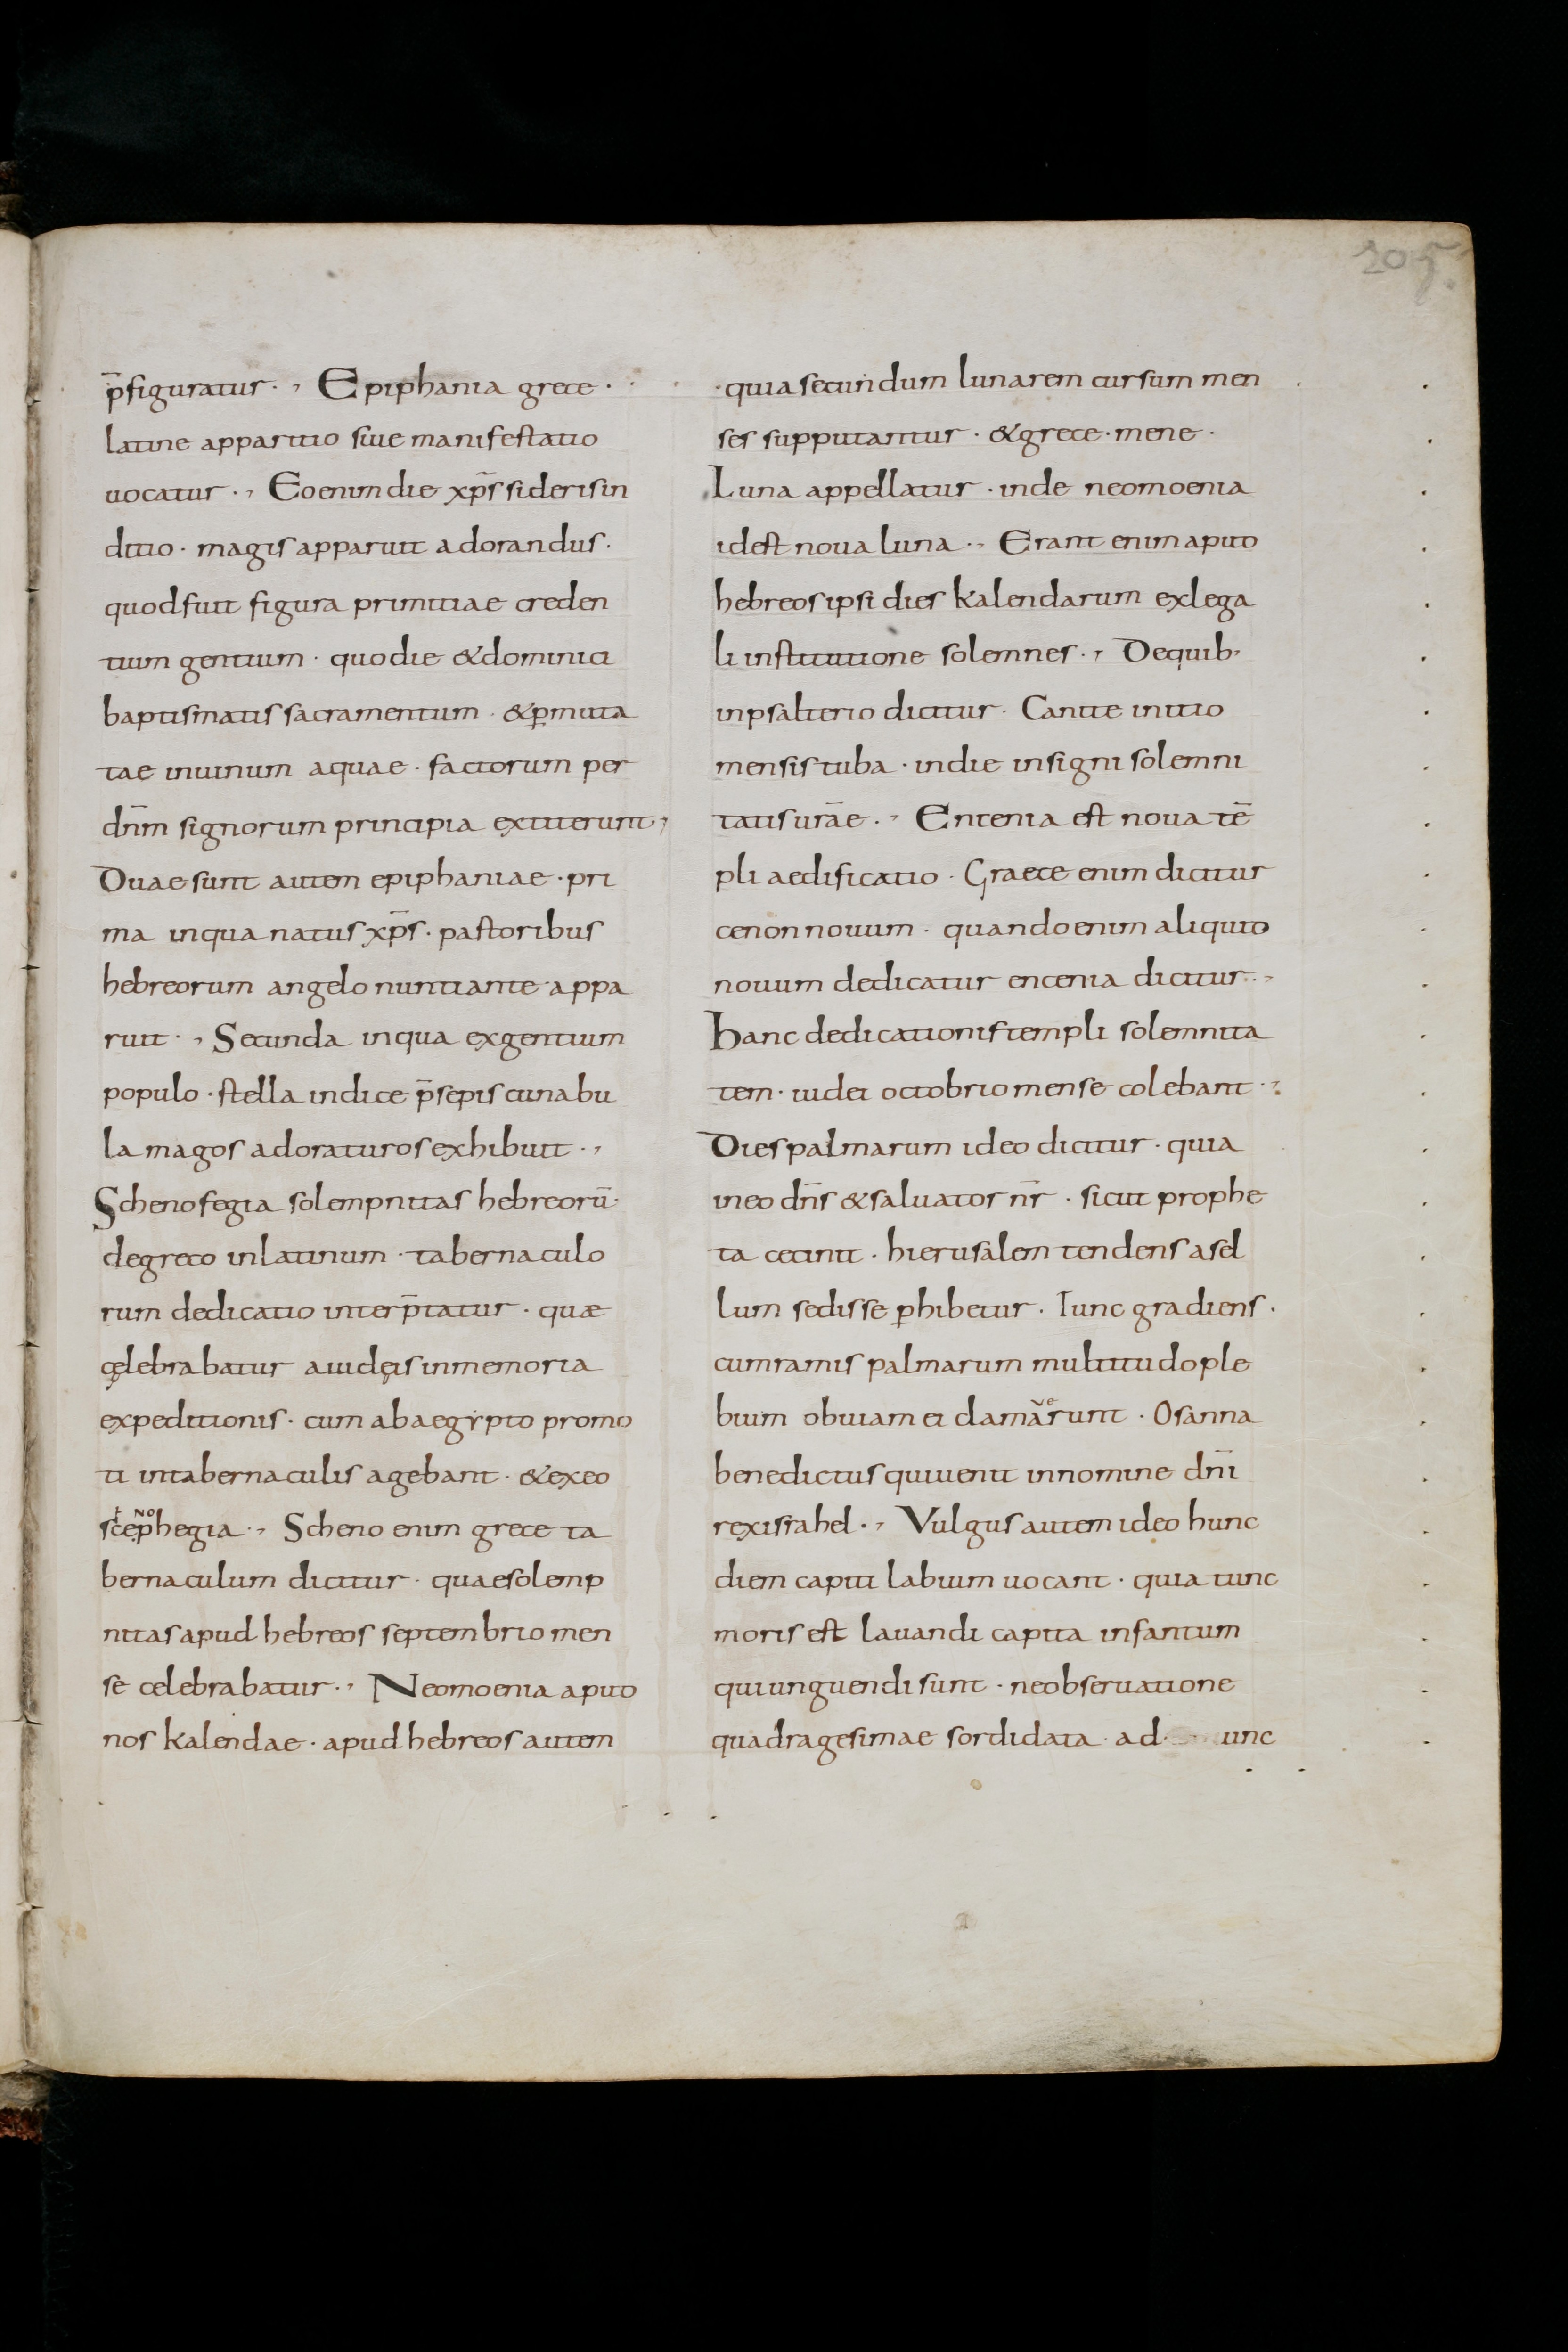 205.
p̄figuratur ·, Epiphania grece ·
latine apparitio siue manifestatio
uocatur ·, Eo enim die xp̄s sideris in
ditio · magis apparuit adorandus ·
quod fuit figura primitiae creden
tium gentium · quo die & dominici
baptismatis sacramentum · & p̱muta
tae in uinum aquae · factorum per
dn̄m signorum principia extiterunt,
Duae sunt autem epiphaniae · pri
ma in qua natus xp̄s · pastoribus
hebreorum angelo nuntiante appa
ruit ·, Secunda in qua ex gentium
populo · stella indice p̄sepis cunabu
la magos adoraturos exhibuit ·,
Schenofegia solempnitas hebreorū ·
de greco in latinum · tabernaculo
rum dedicatio interp̄tatur · quæ
cęlebrabatur a iudęis in memoria
expeditionis · cum ab aegypto promo
ti in tabernaculis agebant · & ex eo
scephegia ·, Scheno enim grece ta
bernaculum dicitur · quae solemp
nitas apud hebreos septembrio men
se celebrabatur ·, Neomoenia aput
nos kalendae · apud hebreos autem
· quia secundum lunarem cursum men
ses supputantur · & grece · mene ·
Luna appellatur · inde neomoenia
id est noua luna ·, Erant enim aput
hebreos ipsi dies kalendarum ex lega
li institutione solemnes ·, De quib·
in psalterio dicitur · Canite initio
mensis tuba · in die insigni solemni
tatis urāe ·, Encenia est noua tē
pli aedificatio · Graece enim dicitur
cenon nouum · quando enim aliquit
nouum dedicatur encenia dicitur ·,
Hanc dedicationis templi solemnita
tem · iudei octobrio mense colebant ·,
Dies palmarum ideo dicitur · quia
in eo dn̄s & saluator nr̄ · sicut prophe
ta cecinit · hierusalem tendens asel
lum sedisse p̱hibetur · Tunc gradiens ·
cum ramis palmarum multitudo ple
bium obuiam ei clamar̄unt · Osanna
benedictus qui uenit in nomine dn̄i
rex israhel ·, Vulgus autem ideo hunc
diem capiti labium uocant · quia tunc
moris est lauandi capita infantum
qui unguendi sunt · ne obseruatione
quadragesimae sordidata · ad · unc